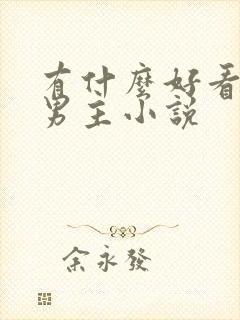 有什麼好看
男主小說
余永發